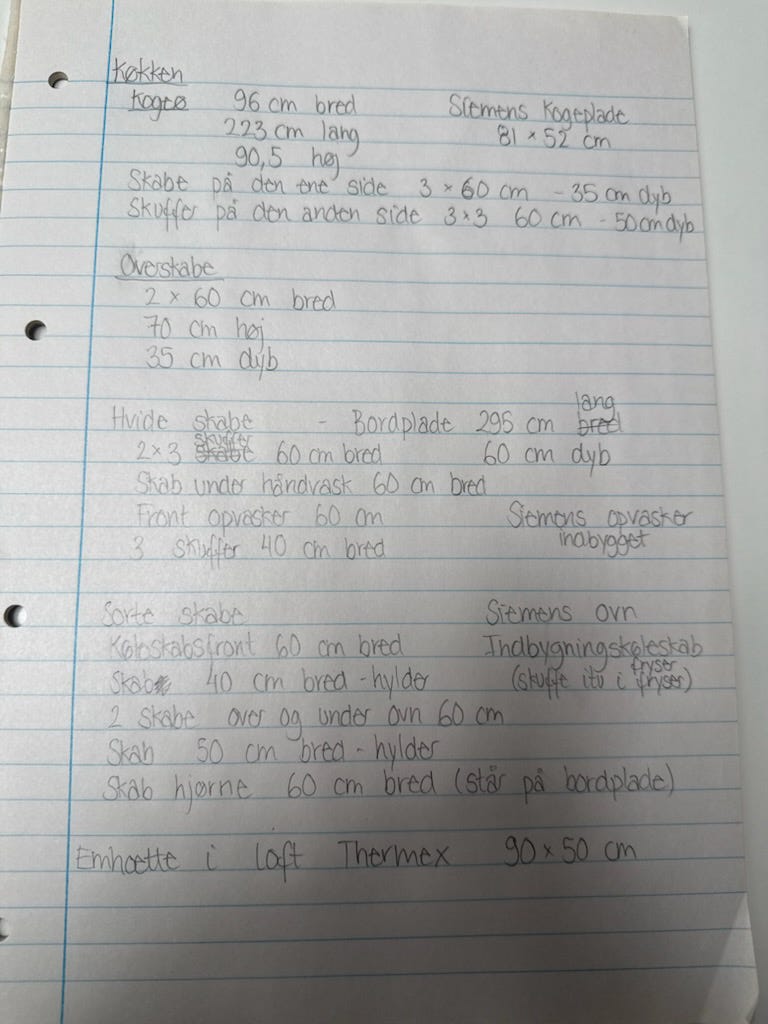 Køkken
Kogeø 96 cm bred Siemens Kogeplade
223 cm lang 81 × 52 cm
90,5 høj
Skabe på den ene side 3 × 60 cm - 35 cm dyb
Skuffer på den anden side 3×3 60 cm - 50 cm dyb
Overskabe
2 × 60 cm bred
70 cm høj
35 cm dyb
Hvide skabe - Bordplade 295 cm bred lang
2×3 skabe skuffer 60 cm bred 60 cm dyb
Skab under håndvask 60 cm bred
Front opvasker 60 cm Siemens opvasker
3 skuffer 40 cm bred indbygget
Sorte skabe Siemens ovn
Køleskabsfront 60 cm bred Indbygningskøleskab
Skab 40 cm bred - hylder (skuffe itu i fryser) fryser
2 skabe over og under ovn 60 cm
Skab 50 cm bred - hylder
Skab hjørne 60 cm bred (står på bordplade)
Emhætte i loft Thermex 90 × 50 cm